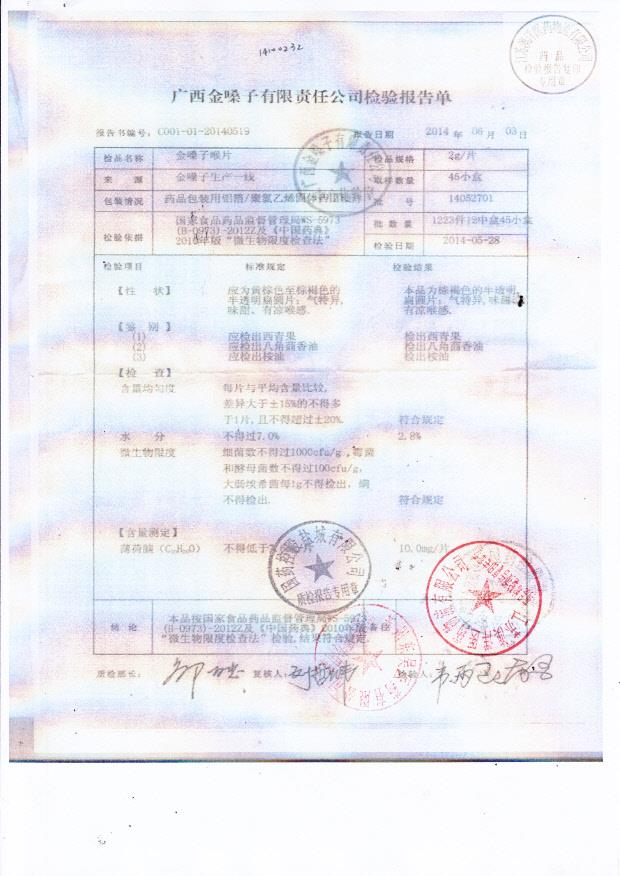 14100232
药品
检验报告复印
专用章
广西金嗓子有限责任公司检验报告单
报告书编号: C001-01-20140519 报告日期 2014 年 06 月 03 日
检品名称 金嗓子喉片 检品规格 2g/片
来 源 金嗓子生产一线 取样数量 45小盒
包装情况 药品包装用铝箔/聚氯乙烯固体药用硬片 批 号 14052701
检验依据 国家食品药品监督管理局WS-5973
(B-0973)-2012Z及《中国药典》
2010年版“微生物限度检查法” 批 数 量 1223件12中盒45小盒
检验日期 2014-05-28
检验项目 标准规定 检验结果
【性 状】 应为黄棕色至棕褐色的 本品为棕褐色的半透明
半透明扁圆片; 气特异, 扁圆片; 气特异, 味甜
味甜、有凉喉感. 有凉喉感.
【鉴 别】
(1) 应检出西青果 检出西青果
(2) 应检出八角茴香油 检出八角茴香油
(3) 应检出桉油 检出桉油
【检 查】
含量均匀度 每片与平均含量比较,
差异大于±15%的不得多
于1片, 且不得超过±20%. 符合规定
水 分 不得过7.0% 2.8%
微生物限度 细菌数不得过1000cfu/g,霉菌
和酵母菌数不得过100cfu/g,
大肠埃希菌每1g不得检出, 螨
不得检出. 符合规定
【含量测定】
薄荷脑 (C₁₀H₂₀O) 不得低于 片 10.0mg/片
国药控股盐城有限公司
质检报告专用章
结 论 本品按国家食品药品监督管理局WS-5973
(B-0973)-2012Z及《中国药典》2010年版 备注
“微生物限度检查法”检验, 结果符合规定.
质检部长: 复核人: 检验人: